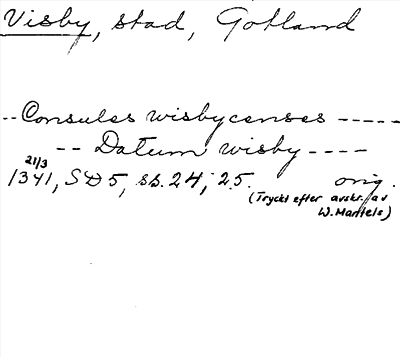 Visby, stad, Gotland
-- Consules wisbycenses -----
-- Datum wisby ----
21/3
1341, SD 5, sb. 24, 25. orig.
(Tryckt efter avskr. av
W. Mantels)